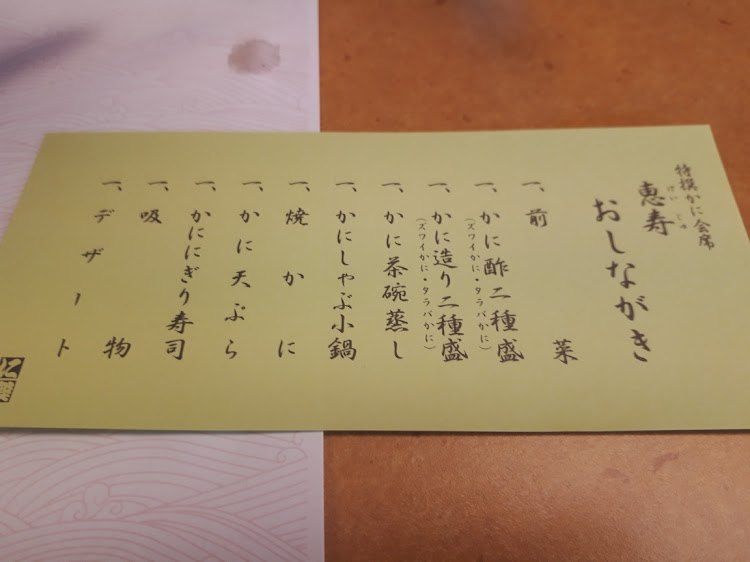 特撰かに会席
恵寿
けいじゅ
おしながき
一、前菜
一、かに酢二種盛
（ズワイかに・タラバかに）
一、かに造り二種盛
（ズワイかに・タラバかに）
一、かに茶碗蒸し
一、かにしゃぶ小鍋
一、焼かに
一、かに天ぷら
一、かににぎり寿司
一、吸物
一、デザート